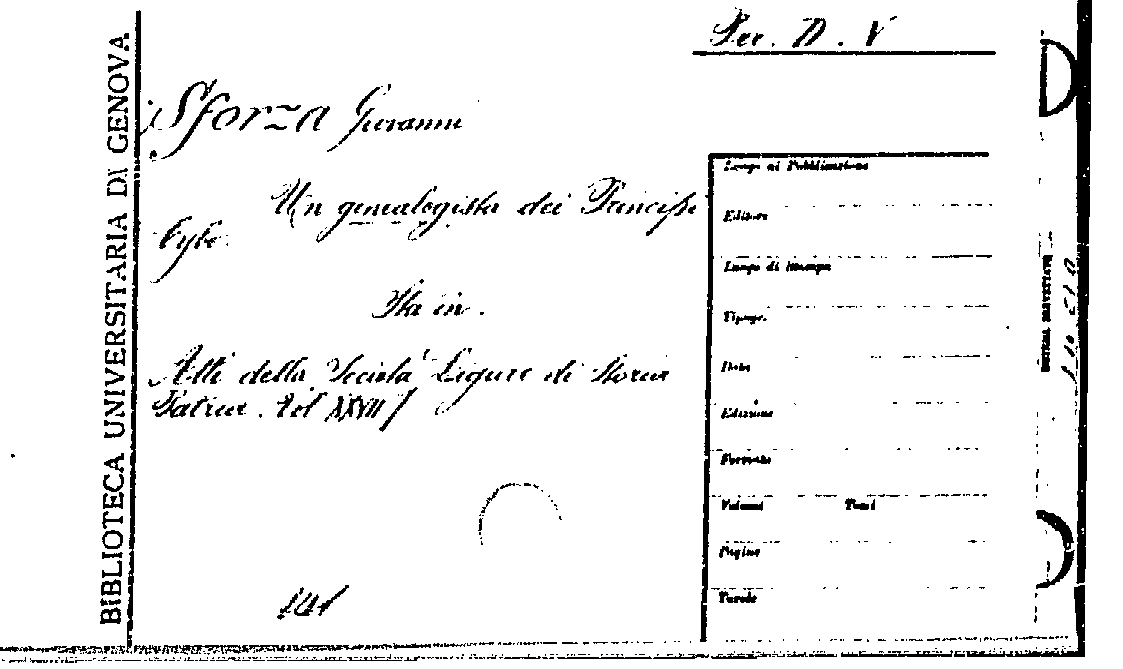 BIBLIOTECA UNIVERSITARIA DI GENOVA
Per. D. V
Sforza Giovanni
Un genealogista dei Principi
Cybo.
Sta in.
Atti della Società Ligure di Storia
Patria. Vol XXVII
Luogo di Pubblicazione
Editore
Luogo di stampa
Tipogr.
Data
Edizione
Formato
Volumi Tomi
Pagine
Tavole